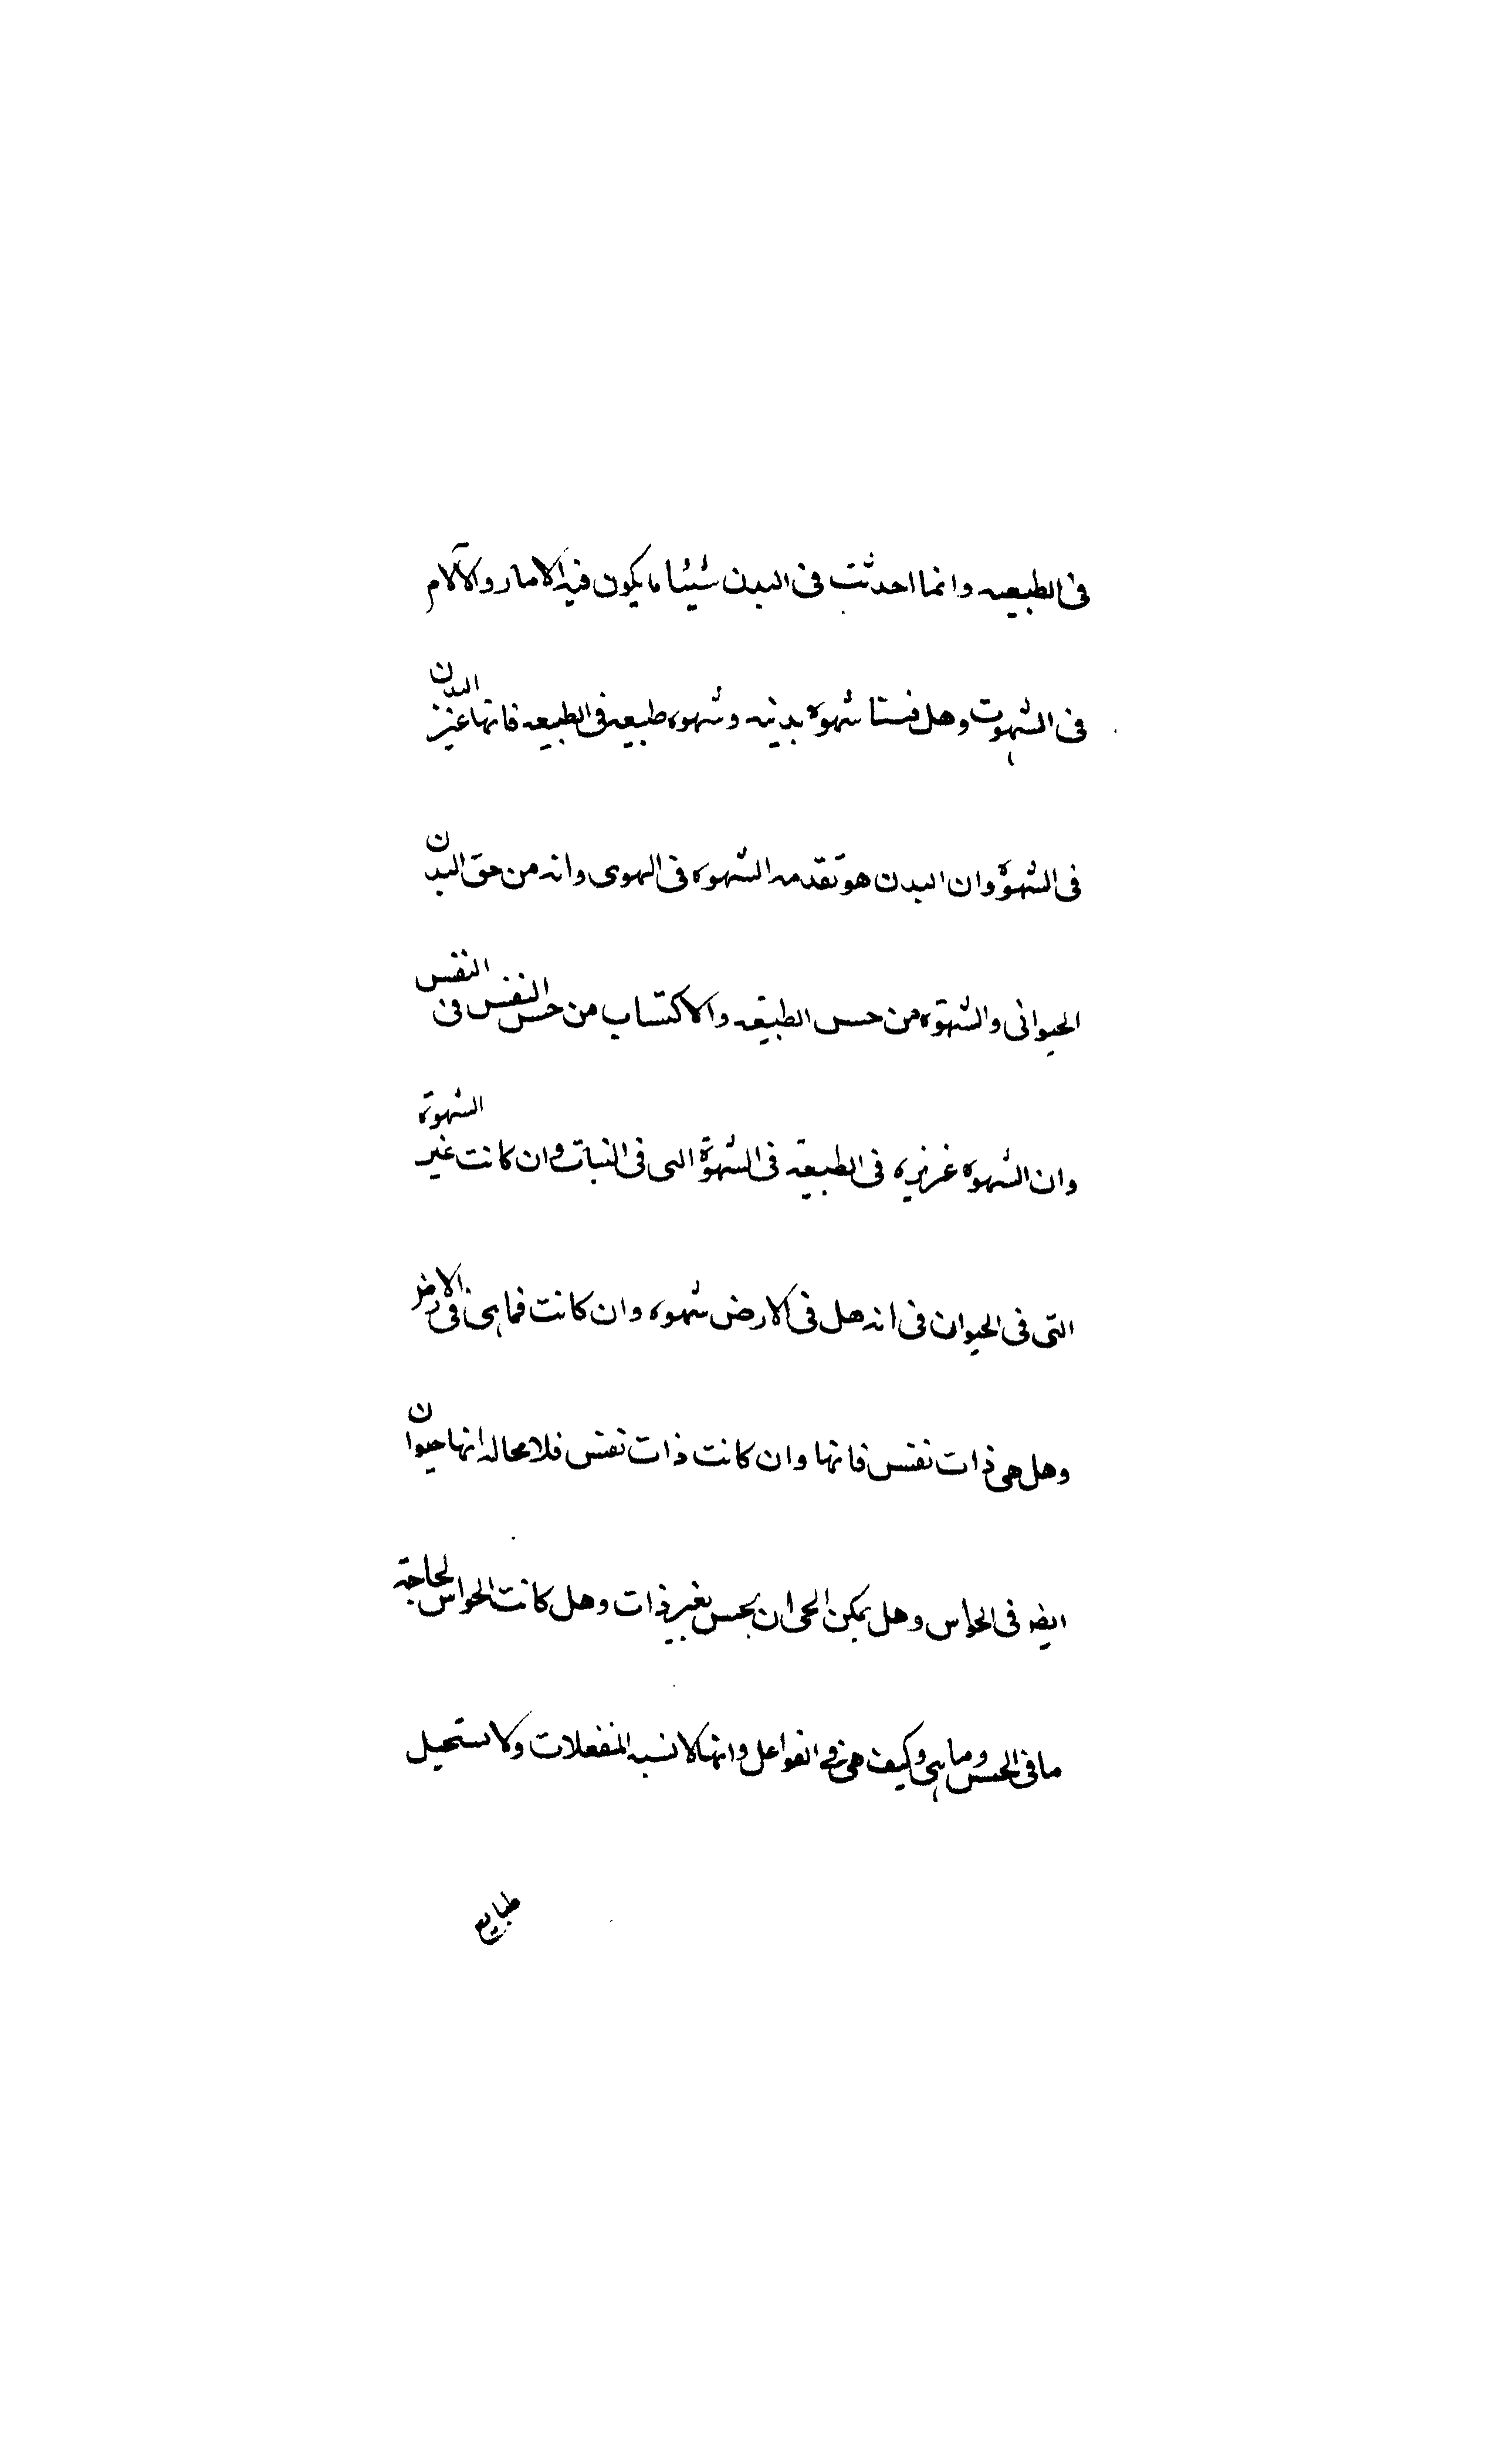 فى الطبيعه وانما احدثت فى البدن شيئا ما يكون فيه الامار والآلام
فى الشهوت وهل فينا شهوة بدنيه وشهوه طبيعه فى الطبيعه فانها غريز البدن
فى الشهوة وان البدن هو تقدمه الشهوه فى الهوى وانه من حق البدن
الحيوانى والشهوة من حس الطبيعة والاكتساب من حس النفس فى النفس
وان الشهوه غريزيه فى الطبيعة فى الشهوة التى فى النبات وان كانت غير الشهوة
التى فى الحيوان فى انه هل فى الارض شهوه وان كانت فما هى فى الارض
وهل هى ذات نفس فانها وان كانت ذات نفس فلا محاله انها حيوان
ايضا فى الحواس وهل يمكن الحى ان يحس بغير ذات وهل كانت الحواس لحاجة
ما فى الحس وما هى وكيف هى فى الفواعل وانها لا نسبه المنفعلات ولا يستحيل
طبايع